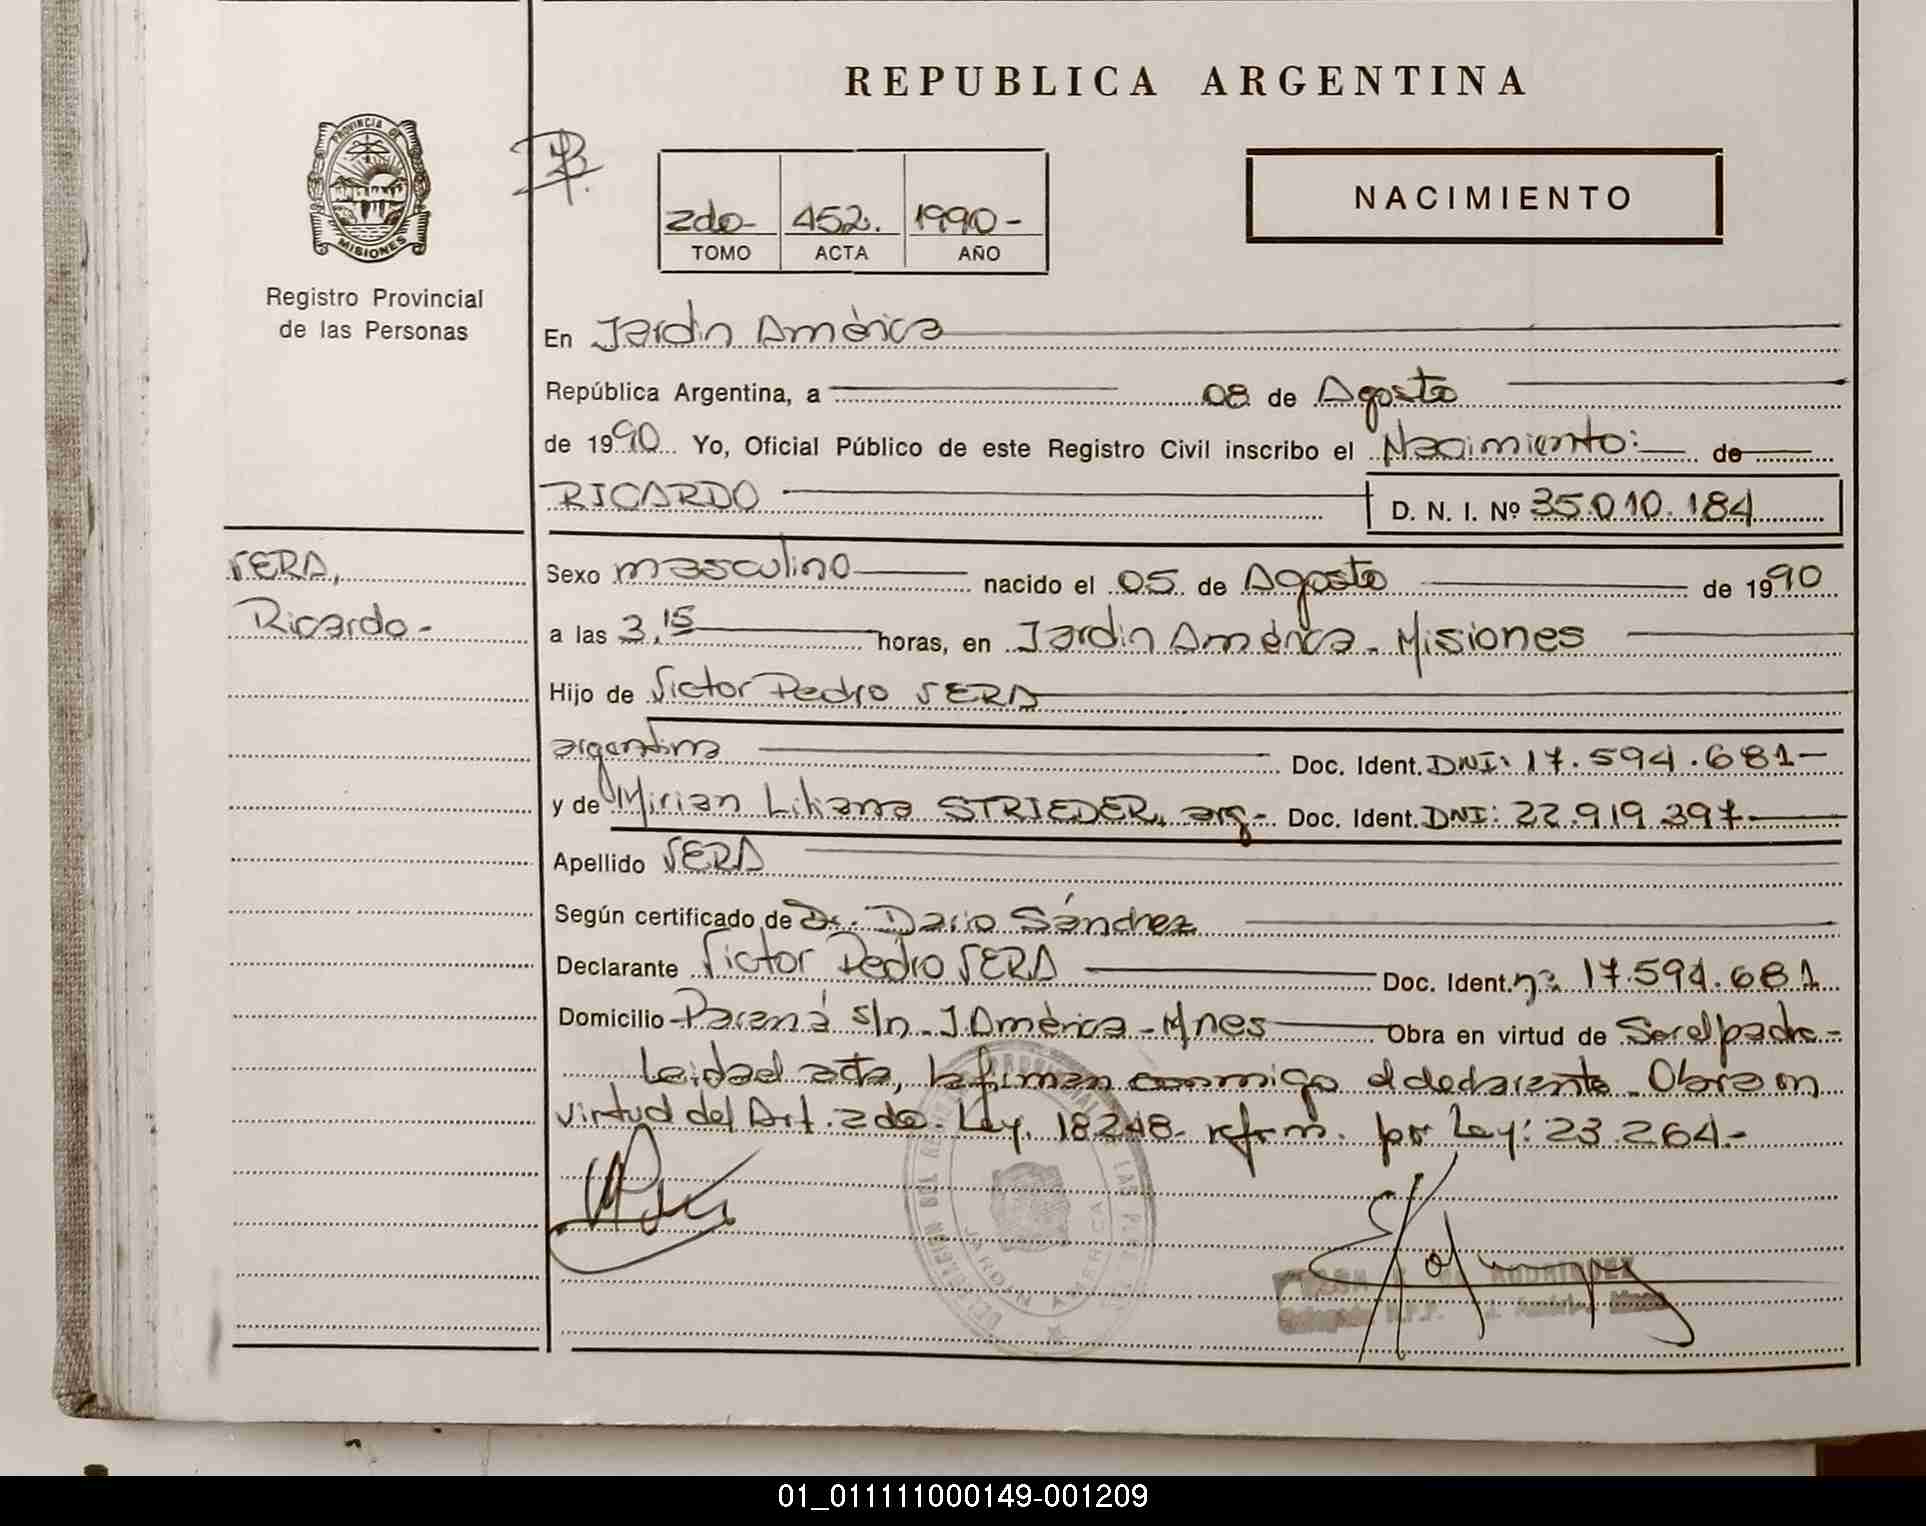 REPUBLICA ARGENTINA
PROVINCIA DE
MISIONES
Registro Provincial
de las Personas
2do- 452. 1990-
TOMO ACTA AÑO
NACIMIENTO
En Jardin América
República Argentina, a 08 de Agosto
de 1990 Yo, Oficial Público de este Registro Civil inscribo el Nacimiento: de
RICARDO D. N. I. Nº 35.010.184
VERA,
Ricardo-
Sexo masculino nacido el 05 de Agosto de 1990
a las 3,15 horas, en Jardin América - Misiones
Hijo de Victor Pedro VERA
argentina Doc. Ident. DNI: 17.594.681-
y de Mirian Liliana STRIEDER, arg- Doc. Ident. DNI: 22.919.397-
Apellido VERA
Según certificado de Dr. Dario Sánchez
Declarante Victor Pedro VERA Doc. Ident. nº. 17.594.681
Domicilio Paraná s/n - J. América - Mnes Obra en virtud de Ser el padre-
Leida el acta, la firman conmigo el declarante. Obra en
virtud del Art. 2do. Ley. 18248- reform. por Ley: 23.264-
JARDIN AMERICA
RODRIGUEZ
01_011111000149-001209